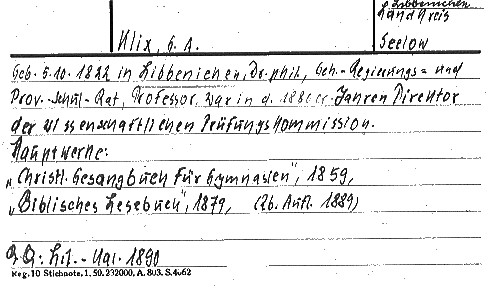 Libbenichen
Landkreis
Klix, G. A.
Seelow
Geb. 5.10.1822 in Libbenichen, Dr. phil., Geh.-Regierungs= und
Prov.-Schul-Rat, Professor, war in d. 1880er Jahren Direktor
der wissenschaftlichen Prüfungskommission.
Hauptwerke:
„Christl. Gesangbuch für Gymnasien", 1859,
„Biblisches Lesebuch", 1879, (26. Aufl. 1889)
Lit.-Kal. 1890
Reg. 10 Stichnote. 1. 50. 232000. A. 803. S. 4062